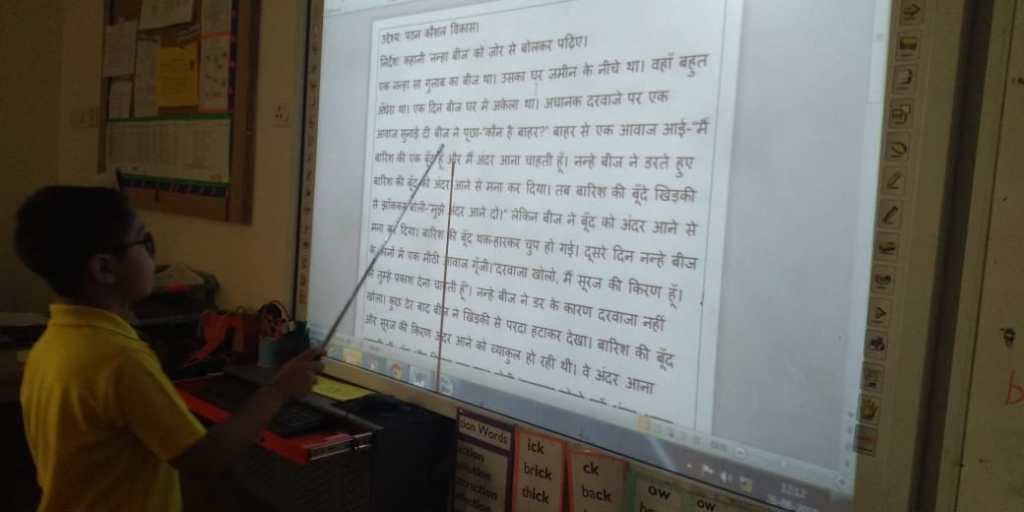 उद्देश्य: पठन कौशल विकास।
निर्देश: कहानी 'नन्हा बीज' को जोर से बोलकर पढ़िए।
एक नन्हा सा गुलाब का बीज था। उसका घर जमीन के नीचे था। वहाँ बहुत
अंधेरा था। एक दिन बीज घर में अकेला था। अचानक दरवाजे पर एक
आवाज सुनाई दी बीज ने पूछा-"कौन है बाहर?" बाहर से एक आवाज आई-"मैं
बारिश की एक बूँद हूँ और मैं अंदर आना चाहती हूँ। नन्हे बीज ने डरते हुए
बारिश की बूँद को अंदर आने से मना कर दिया। तब बारिश की बूँदे खिड़की
से झाँककर बोली-"मुझे अंदर आने दो।" लेकिन बीज ने बूँद को अंदर आने से
मना कर दिया। बारिश की बूँद थक-हारकर चुप हो गई। दूसरे दिन नन्हे बीज
के कानों में एक मीठी आवाज गूँजी। दरवाजा खोलो, मैं सूरज की किरण हूँ।
मैं तुम्हें प्रकाश देना चाहती हूँ।) नन्हे बीज ने डर के कारण दरवाजा नहीं
खोला। कुछ देर बाद बीज ने खिड़की से परदा हटाकर देखा। बारिश की बूँद
और सूरज की किरण अंदर आने को व्याकुल हो रही थी। वे अंदर आना
tion Words
ction
ick
brick
thick
ck
back
ow
ow
12:12
b